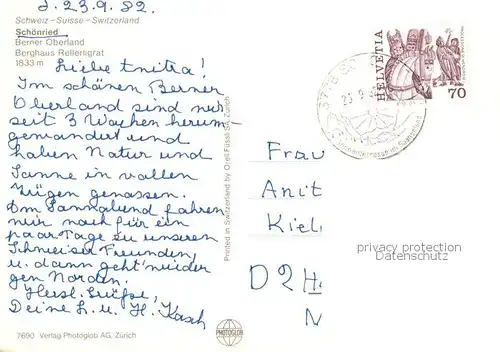 d. 23.9.82.
Schweiz - Suisse - Switzerland
Schönried
Berner Oberland
Berghaus Rellerligrat
1833 m
Liebe Anitra!
Im schönen Berner
Oberland sind wir
seit 3 Wochen herum-
gewandert und
haben Natur und
Sonne in vollen
Zügen genossen.
Am Sonnabend fahren
wir noch für ein
paar Tage zu unseren
Schweizer Freunden
u. dann geht's wieder
gen Norden.
Herzl. Grüße,
Deine L. u. H. Kasch
7690 Verlag Photoglob AG, Zürich
Printed in Switzerland by Orell Füssli SA, Zürich
PHOTOGLOB
HELVETIA
70
Frau
Anit
Kiel
D 2 H
privacy protection
Datenschutz